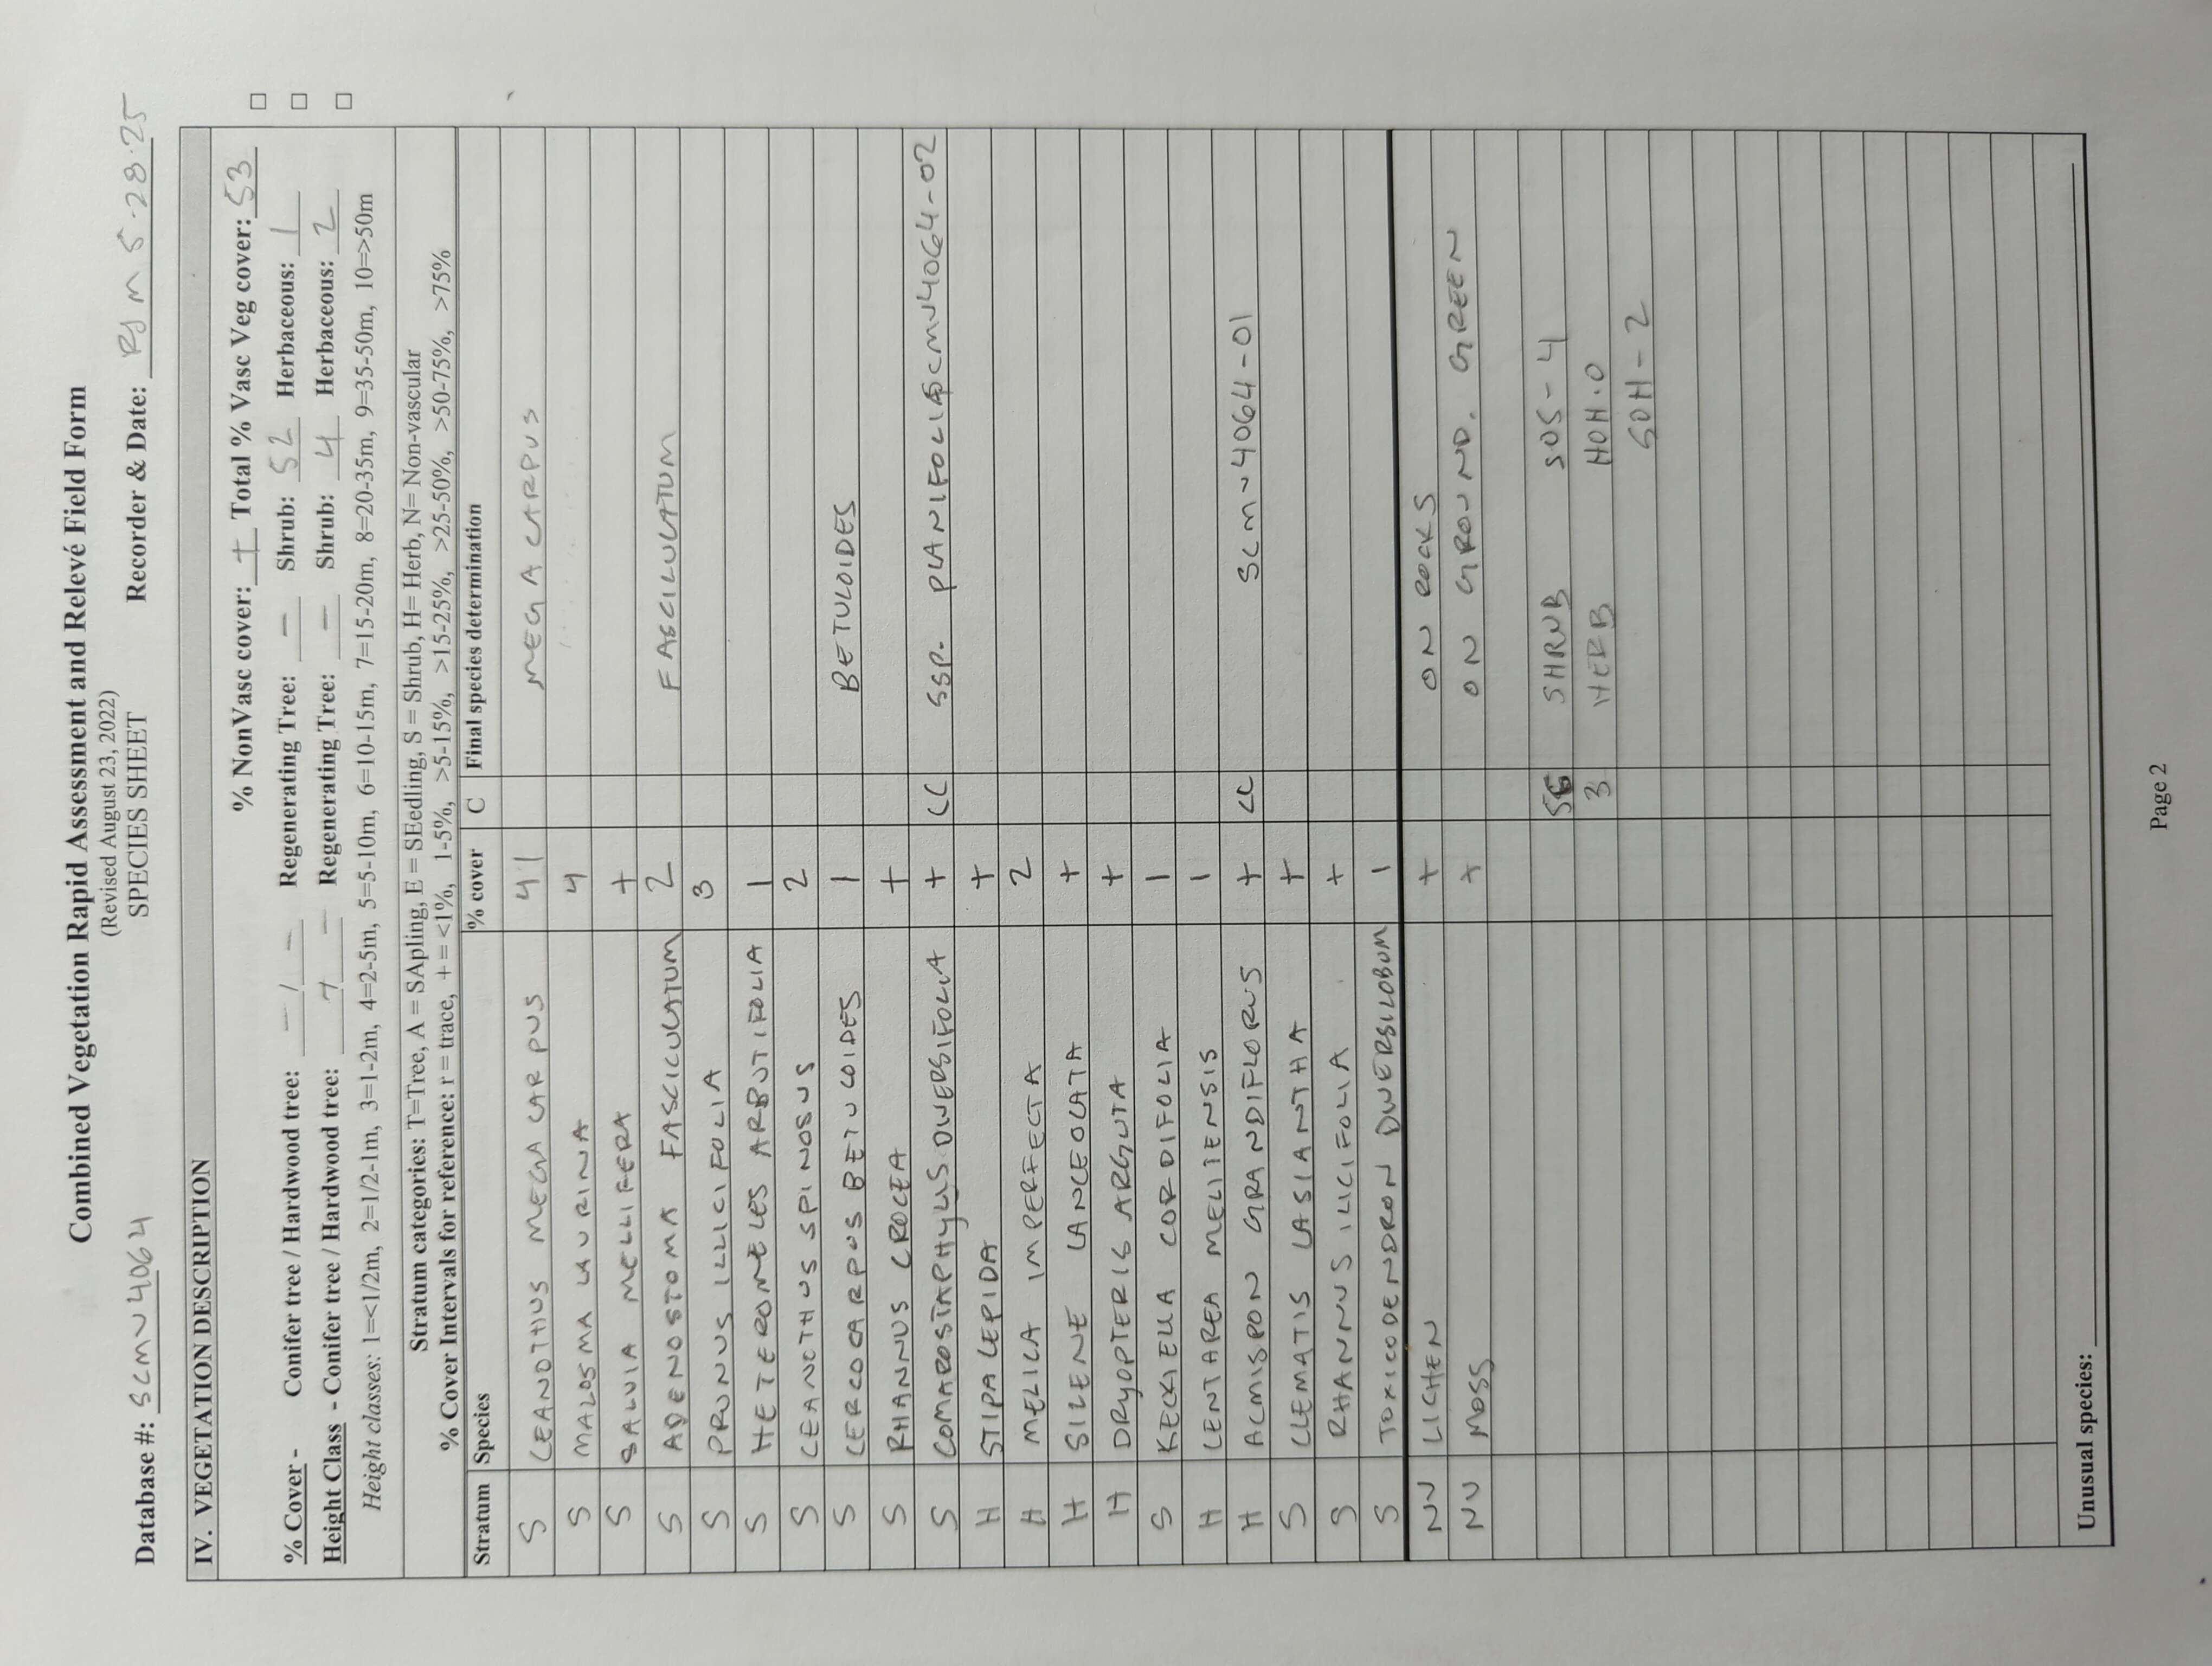 Combined Vegetation Rapid Assessment and Relevé Field Form
(Revised August 23, 2022)
Database #: SCMV4064 SPECIES SHEET Recorder & Date: RJM 5-28-25
IV. VEGETATION DESCRIPTION
% NonVasc cover: + Total % Vasc Veg cover: 53 □
% Cover - Conifer tree / Hardwood tree: — / — Regenerating Tree: — Shrub: 52 Herbaceous: 1 □
Height Class - Conifer tree / Hardwood tree: / — Regenerating Tree: — Shrub: 4 Herbaceous: 2 □
Height classes: 1=<1/2m, 2=1/2-1m, 3=1-2m, 4=2-5m, 5=5-10m, 6=10-15m, 7=15-20m, 8=20-35m, 9=35-50m, 10=>50m
Stratum categories: T=Tree, A = SApling, E = SEedling, S = Shrub, H= Herb, N= Non-vascular
% Cover Intervals for reference: r = trace, + = <1%, 1-5%, >5-15%, >15-25%, >25-50%, >50-75%, >75%
Stratum Species % cover C Final species determination
S CEANOTHUS MEGACARPUS 41 MEGACARPUS
S MALOSMA LAURINA 4
S SALVIA MELLIFERA +
S ADENOSTOMA FASCICULATUM 2 FASCICULATUM
S PRUNUS ILLICIFOLIA 3
S HETEROMELES ARBUTIFOLIA 1
S CEANOTHUS SPINOSUS 2
S CERCOCARPUS BETULOIDES 1 BETULOIDES
S RHANNUS CROCEA +
S COMAROSTAPHYLUS DIVERSIFOLIA + CC SSP. PLANIFOLIA SCMV4064-02
H STIPA LEPIDA +
H MELICA IMPERFECTA 2
H SILENE LANCEOLATA +
H DRYOPTERIS ARGUTA +
S KECKIELLA CORDIFOLIA 1
H CENTAREA MELITENSIS 1
H ACMISPON GRANDIFLORUS + CC SCMV4064-01
S CLEMATIS LASIANTHA +
S RHANNUS ILICIFOLIA +
S TOXICODENDRON DIVERSILOBUM 1
NV LICHEN + ON ROCKS
NV MOSS + ON GROUND. GREEN
SHRUB SOS-4
3 HERB HOH.0
SOH-2
Unusual species:
Page 2